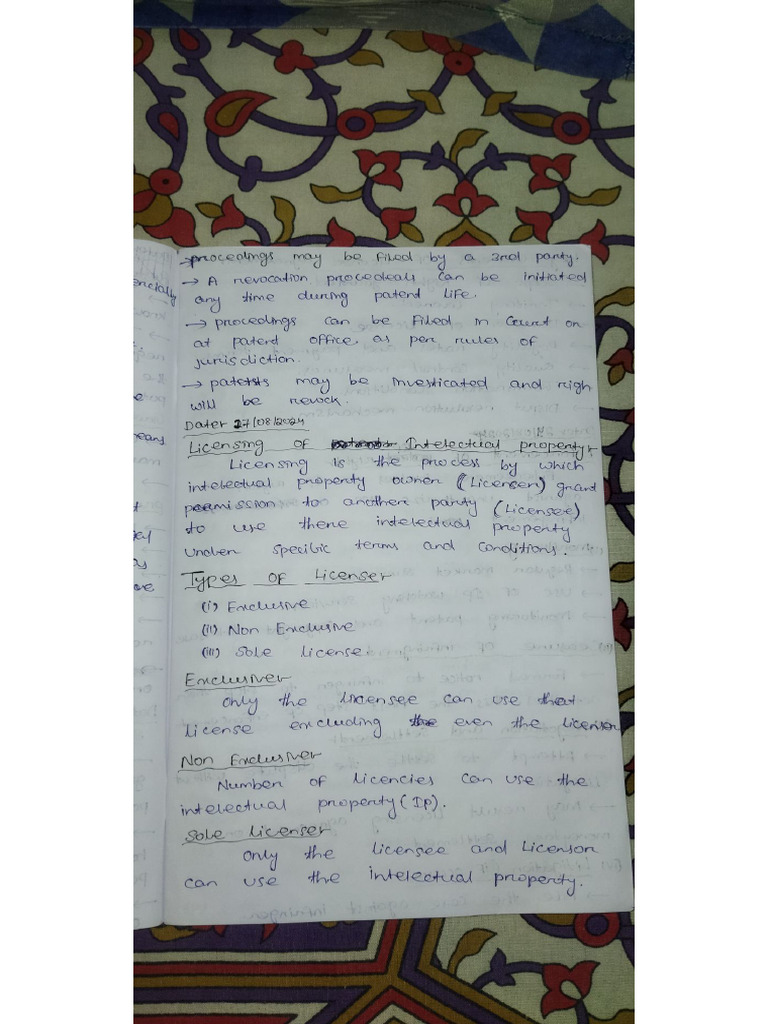 → procedings may be filed by a 3rd party.
encially
→ A revocation procedeals can be initiated
any time during patent life.
→ procedings can be filed in Court or
at patent office as per rules of
jurisdiction.
→ patetsts may be investicated and righ
will be revock.
Date:- 27/08/2024
eans
Licensing of Intelectual property:-
Licensing is the process by which
intelectual property owner (Licenser) grant
permission to another party (Licensee)
to use there intelectual property
under specific terms and conditions.
Types of License:-
(i) Exclusive
(ii) Non Exclusive
(iii) Sole license.
Exclusive:-
Only the licensee can use that
license excluding even the licenser
Non Exclusive:-
Number of licencies can use the
intelectual property (IP).
Sole license:-
Only the licensee and Licensor
can use the intelectual property.